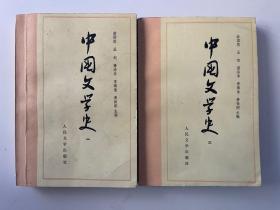 游国恩 王起 萧涤非 季镇淮 费振刚 主编
中国文学史
一
人民文学出版社
游国恩 王起 萧涤非 季镇淮 费振刚 主编
中国文学史
三
人民文学出版社